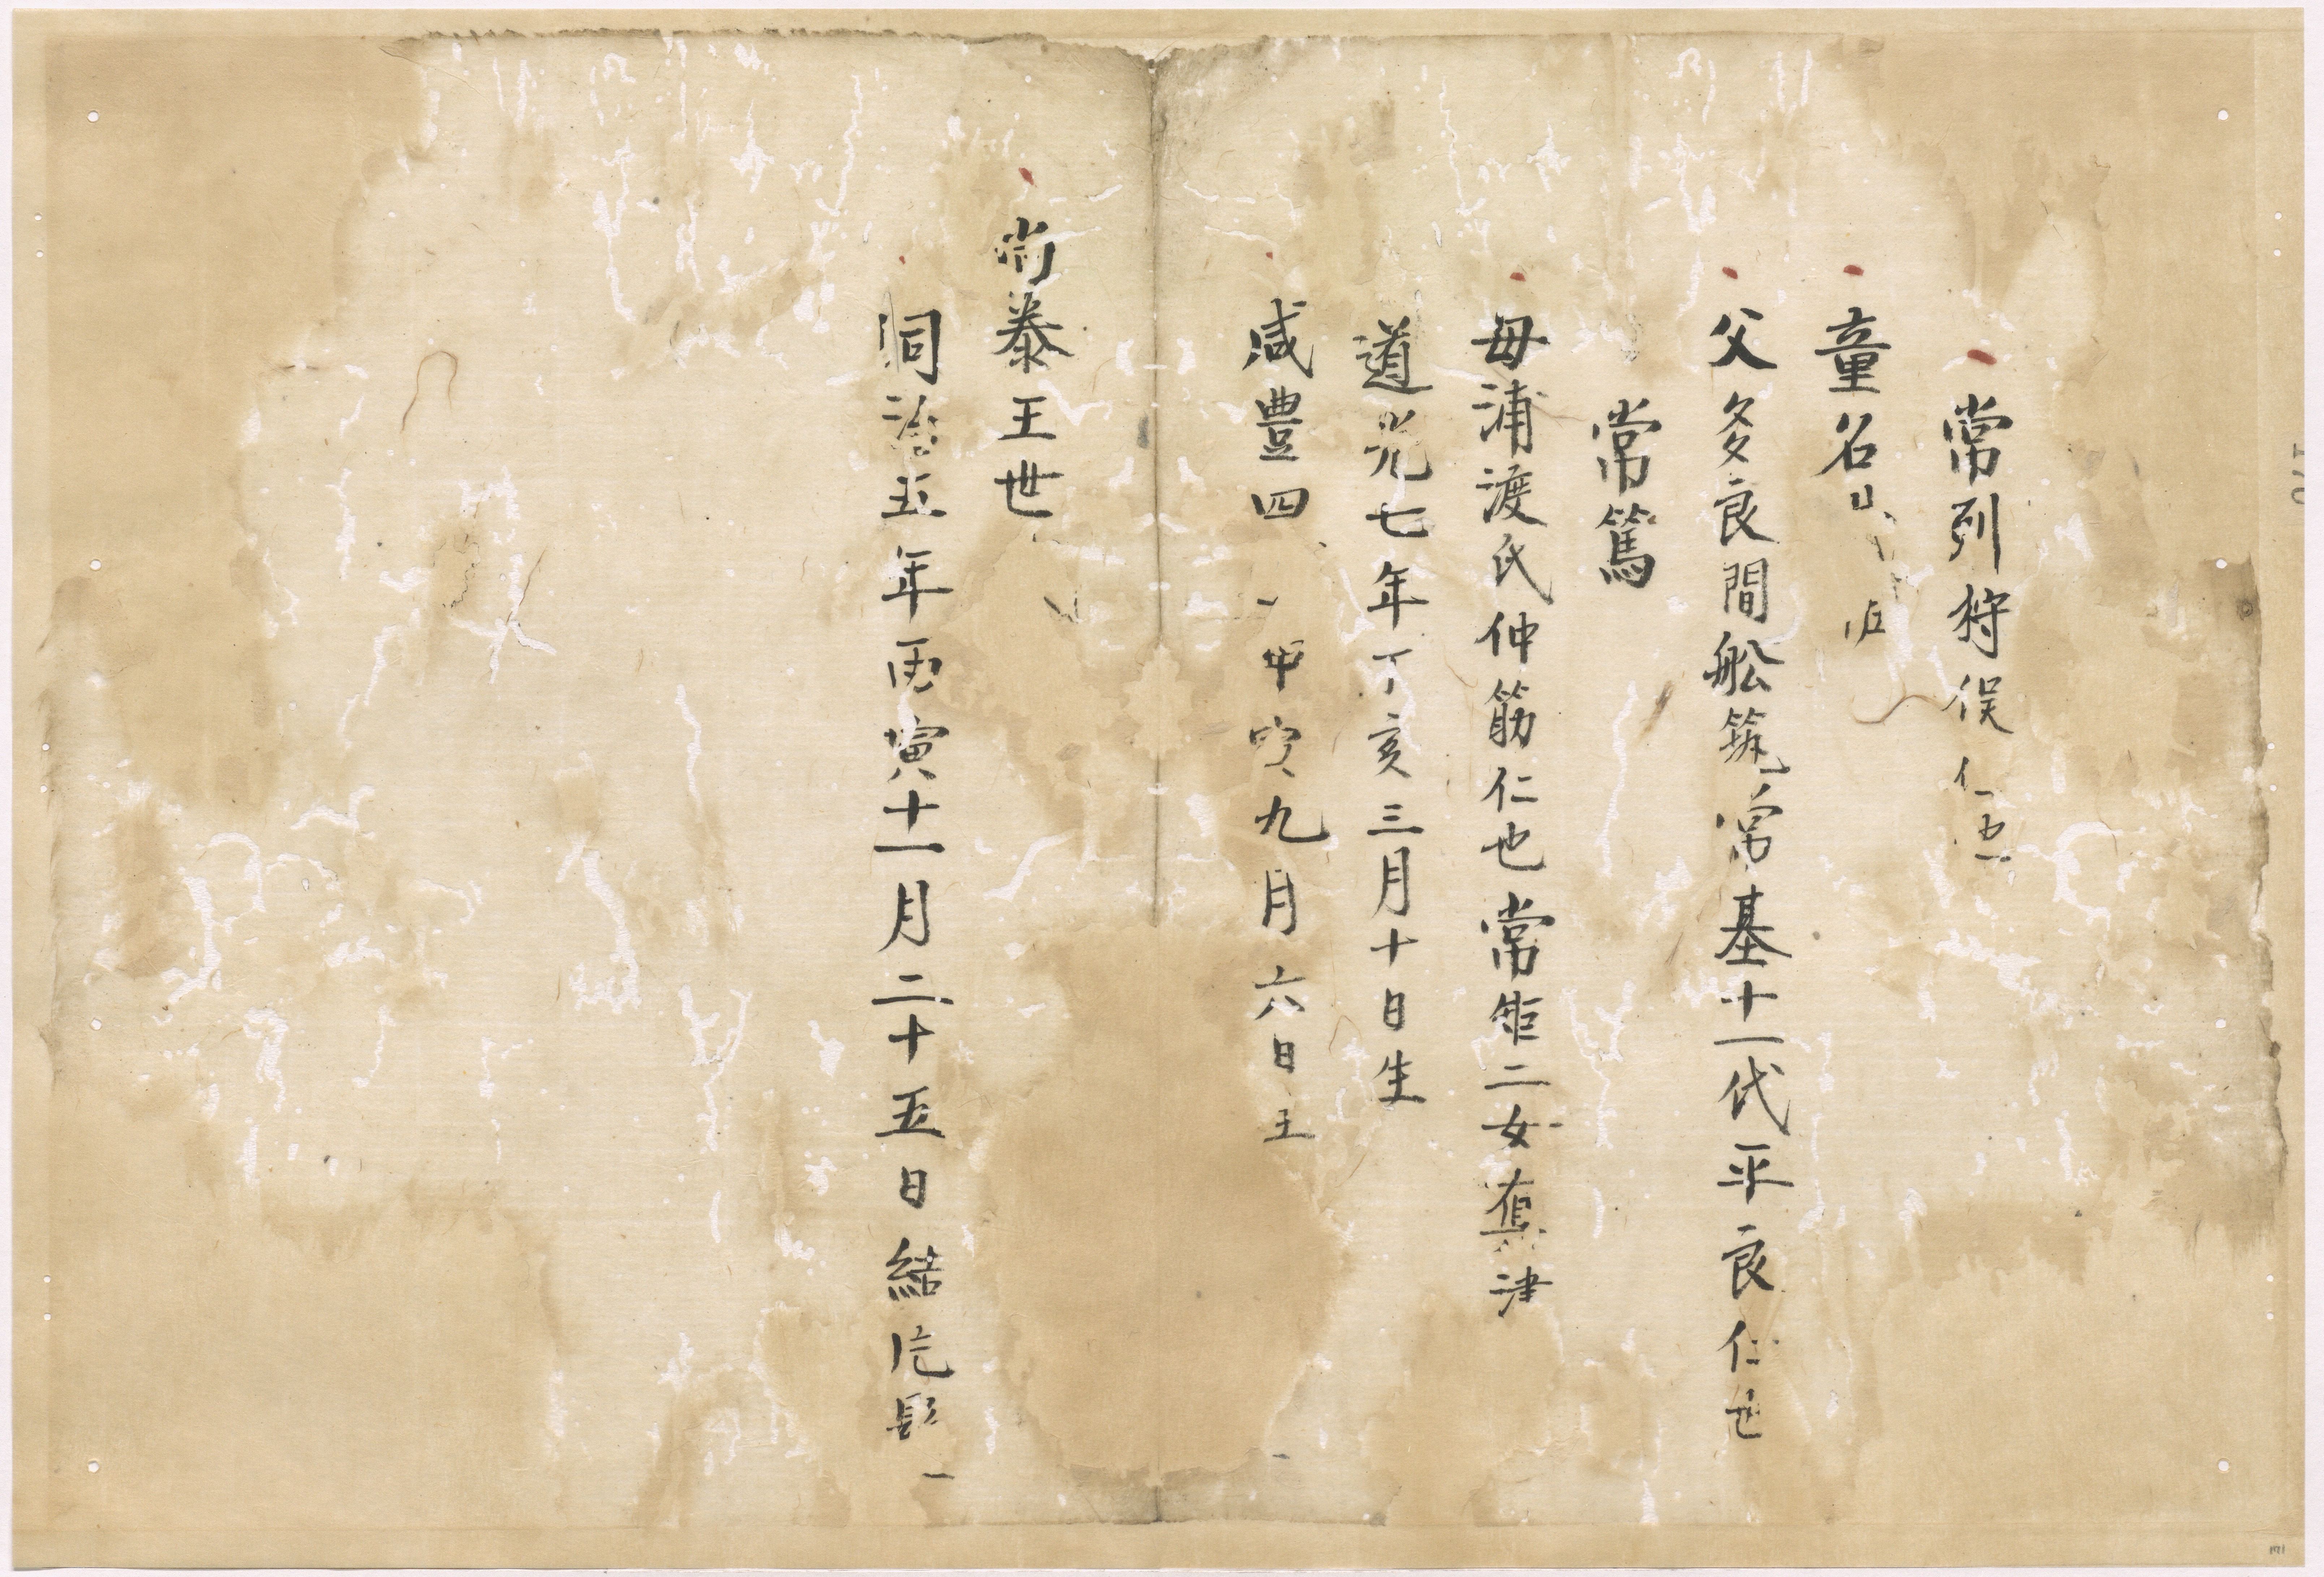 常列狩俣仁也
童名
父多良間舩筑常基十一代平良仁也
常篤
母浦渡氏仲筋仁也常矩二女奪津
道光七年丁亥三月十日生
咸豊四甲寅九月六日
尚泰王世
同治五年丙寅十一月二十五日結片髪